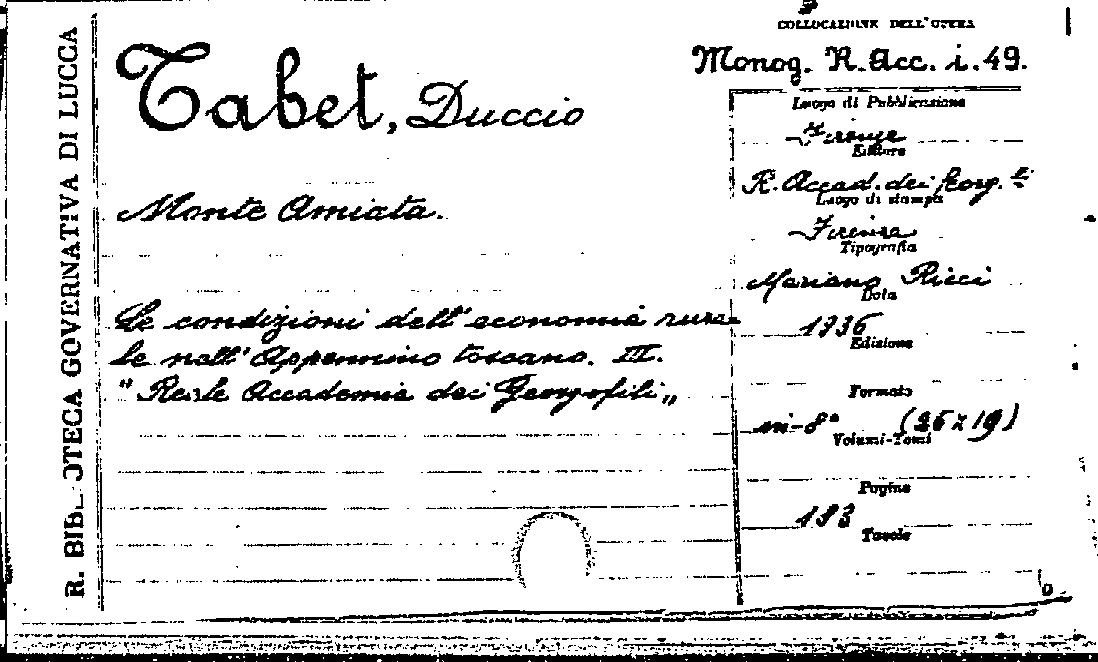 R. BIBLIOTECA GOVERNATIVA DI LUCCA
COLLOCAZIONE DELL'OPERA
Monog. R. Acc. i. 49.
Tabet, Duccio
Monte Amiata.
Le condizioni dell'economia rura=
le nell'Appennino toscano. III.
"Reale Accademia dei Georgofili„
Luogo di Pubblicazione
Firenze
Editore
R. Accad. dei Georg.li
Luogo di stampa
Firenze
Tipografia
Mariano Ricci
Data
1936
Edizione
Formato
in-8° (26 x 19)
Volumi-Tomi
Pagine
193
Tavole